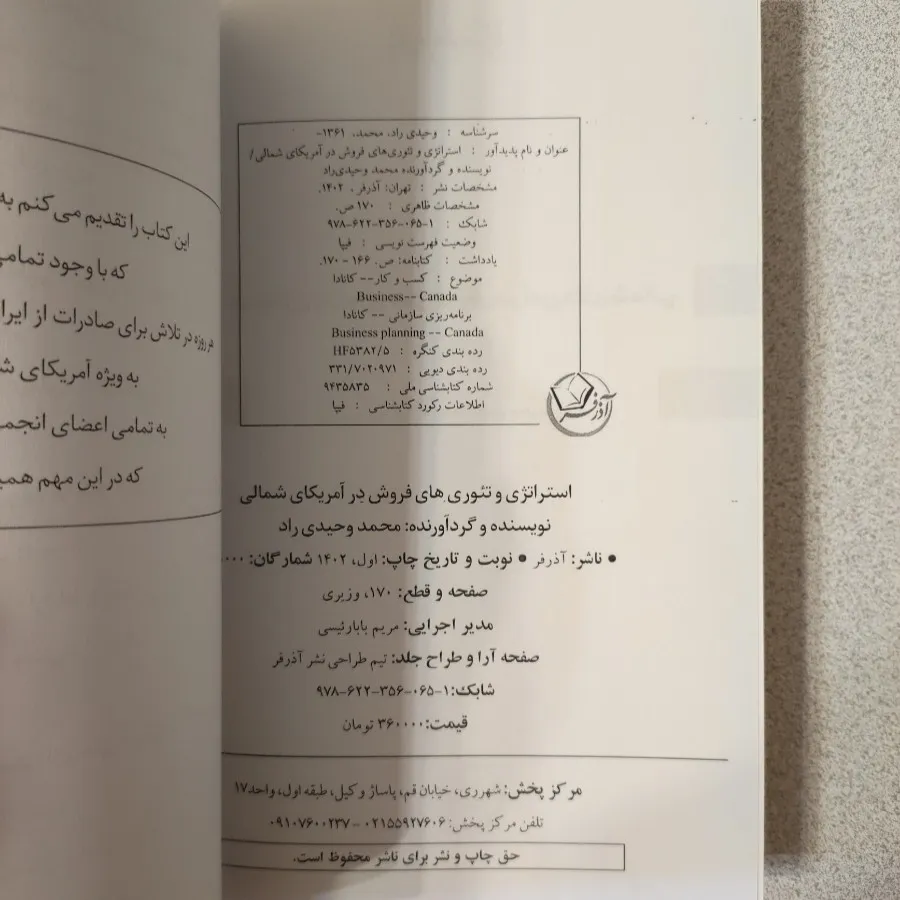 سرشناسه : وحیدی راد، محمد، ۱۳۶۱-
عنوان و نام پدیدآور : استراتژی و تئوری‌های فروش در آمریکای شمالی/
نویسنده و گردآورنده محمد وحیدی‌راد
مشخصات نشر : تهران: آذرفر، ۱۴۰۲.
مشخصات ظاهری : ۱۷۰ ص.
شابک : ۹۷۸-۶۲۲-۳۵۶-۰۶۵-۱
وضعیت فهرست نویسی : فیپا
یادداشت : کتابنامه: ص. ۱۶۶ - ۱۷۰.
موضوع : کسب و کار-- کانادا
Business-- Canada
برنامه‌ریزی سازمانی -- کانادا
Business planning -- Canada
رده بندی کنگره : HF۵۳۸۲/۵
رده بندی دیویی : ۳۳۱/۷۰۲۰۹۷۱
شماره کتابشناسی ملی : ۹۴۳۵۸۳۵
اطلاعات رکورد کتابشناسی : فیپا
آذرفر
استراتژی و تئوری های فروش در آمریکای شمالی
نویسنده و گردآورنده: محمد وحیدی راد
• ناشر: آذرفر • نوبت و تاریخ چاپ: اول، ۱۴۰۲ شمارگان:
صفحه و قطع: ۱۷۰، وزیری
مدیر اجرایی: مریم بابارئیسی
صفحه آرا و طراح جلد: تیم طراحی نشر آذرفر
شابک: ۹۷۸-۶۲۲-۳۵۶-۰۶۵-۱
قیمت: ۳۶۰۰۰۰ تومان
مرکز پخش: شهرری، خیابان قم، پاساژ وکیل، طبقه اول، واحد ۱۷
تلفن مرکز پخش: ۰۲۱۵۵۹۲۷۶۰۶ - ۰۹۱۰۷۶۰۰۲۳۷
حق چاپ و نشر برای ناشر محفوظ است.
این کتاب را تقدیم می کنم به
که با وجود تمامی
هر روزه در تلاش برای صادرات از
به ویژه آمریکای
به تمامی اعضای
که در این مهم